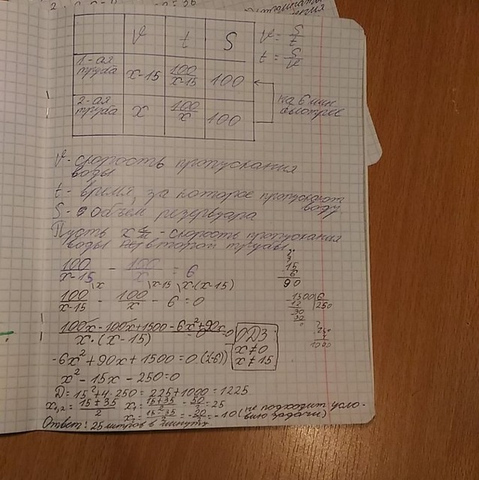 V t S
V = S/t
t = S/V
1-ая труба x-15 100/x-15 100
2-ая труба x 100/x 100
на 6 мин. быстрее
V - скорость пропускания воды
t - время, за которое пропускают воду
S - объём резервуара
Пусть x - скорость пропускания
воды второй трубы
100/x-15 - 100/x = 6
100/x-15 \x - 100/x \x-15 - 6 \x(x-15) = 0
100x-100x+1500-6x²+90x / x·(x-15) = 0
ОДЗ
x≠0
x≠15
-6x²+90x+1500=0 (:(-6))
x²-15x-250=0
D=15²+4·250=225+1000=1225
x1,2=15±35/2 x1=15+35/2=50/2=25
x2=15-35/2=-20/2=-10 (не подходит условию задачи)
Ответ: 25 литров в минуту
15
6
90
1500 6
250
30